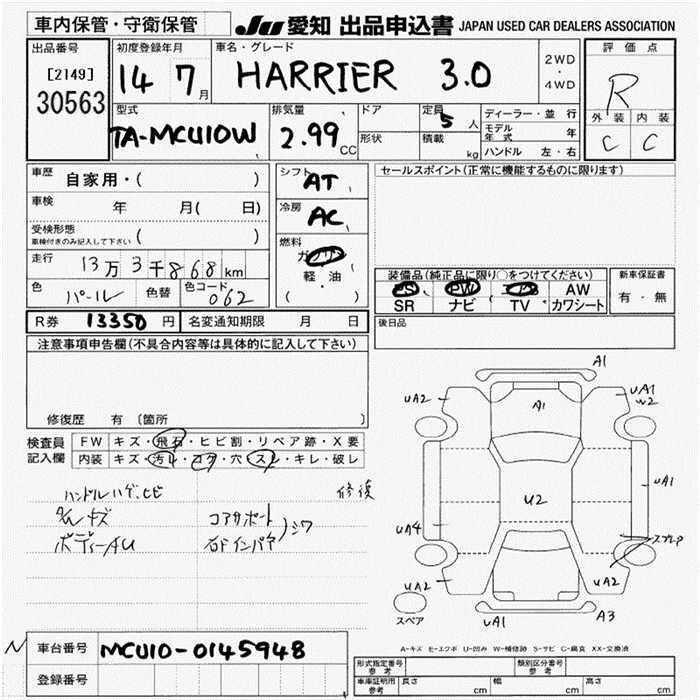 車内保管・守衛保管
JU 愛知 出品申込書 JAPAN USED CAR DEALERS ASSOCIATION
出品番号
[2149]
30563
初度登録年月
14 7月
車名・グレード
HARRIER 3.0
2WD
・
4WD
評価点
R
外装 内装
C C
型式
TA-MCU10W
排気量
2.99 CC
ドア
形状
定員
5人
積載 kg
ディーラー・並行
モデル年式 年
ハンドル 左・右
車歴 自家用・( )
車検 年 月( 日)
受検形態
車検付きのみ記入して下さい ( )
走行 13万3千868km
色 パール 色替 色コード 062
シフト AT
冷房 AC
燃料
ガソリン
軽・油
( )
セールスポイント(正常に機能するものに限ります)
装備品(純正品に限り○をつけてください)
PS PW エアB AW
SR ナビ TV カワシート
新車保証書
有・無
R券 13350円 名変通知期限 月 日
後日品
注意事項申告欄(不具合内容等は具体的に記入して下さい)
修復歴 有 〔箇所 〕
検査員記入欄
FW キズ・飛石・ヒビ割・リペア跡・X要
内装 キズ・汚れ・コゲ・穴・スレ・キレ・破レ
ハンドルハゲ、ヒビ 修復
キズ コアサポート
ボディーAU インパネ シワ
A1
UA2
A1
UA1
W2
U2
UA1
UA4
UA2
UA2
UA1
A3
スペア
A-キズ E-エクボ U-凹み W-補修跡 S-サビ C-腐食 XX-交換済
N
車台番号 MCU10-0145948
登録番号
形式指定番号
参考
類別区分番号
参考
車庫証明用
参考
長さ cm 幅 cm 高さ cm